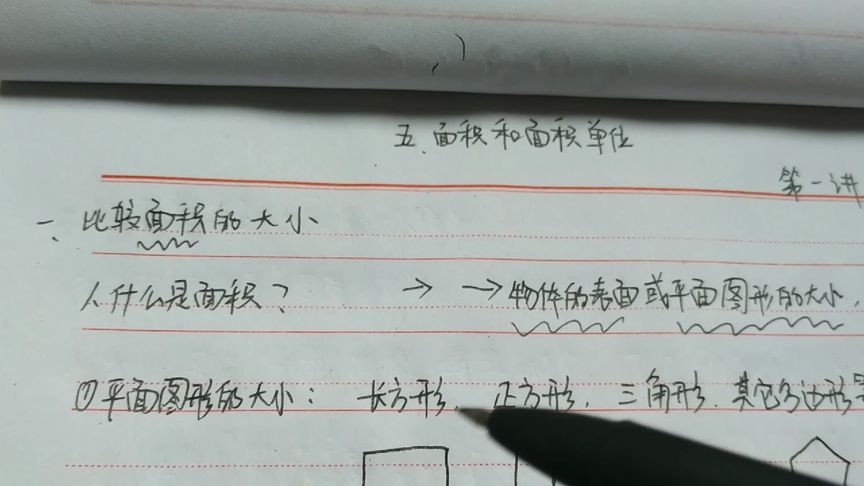 五、面积和面积单位
第一讲
一、比较面积的大小
1、什么是面积? → →物体的表面或平面图形的大小,
①平面图形的大小: 长方形、正方形、三角形、其它多边形